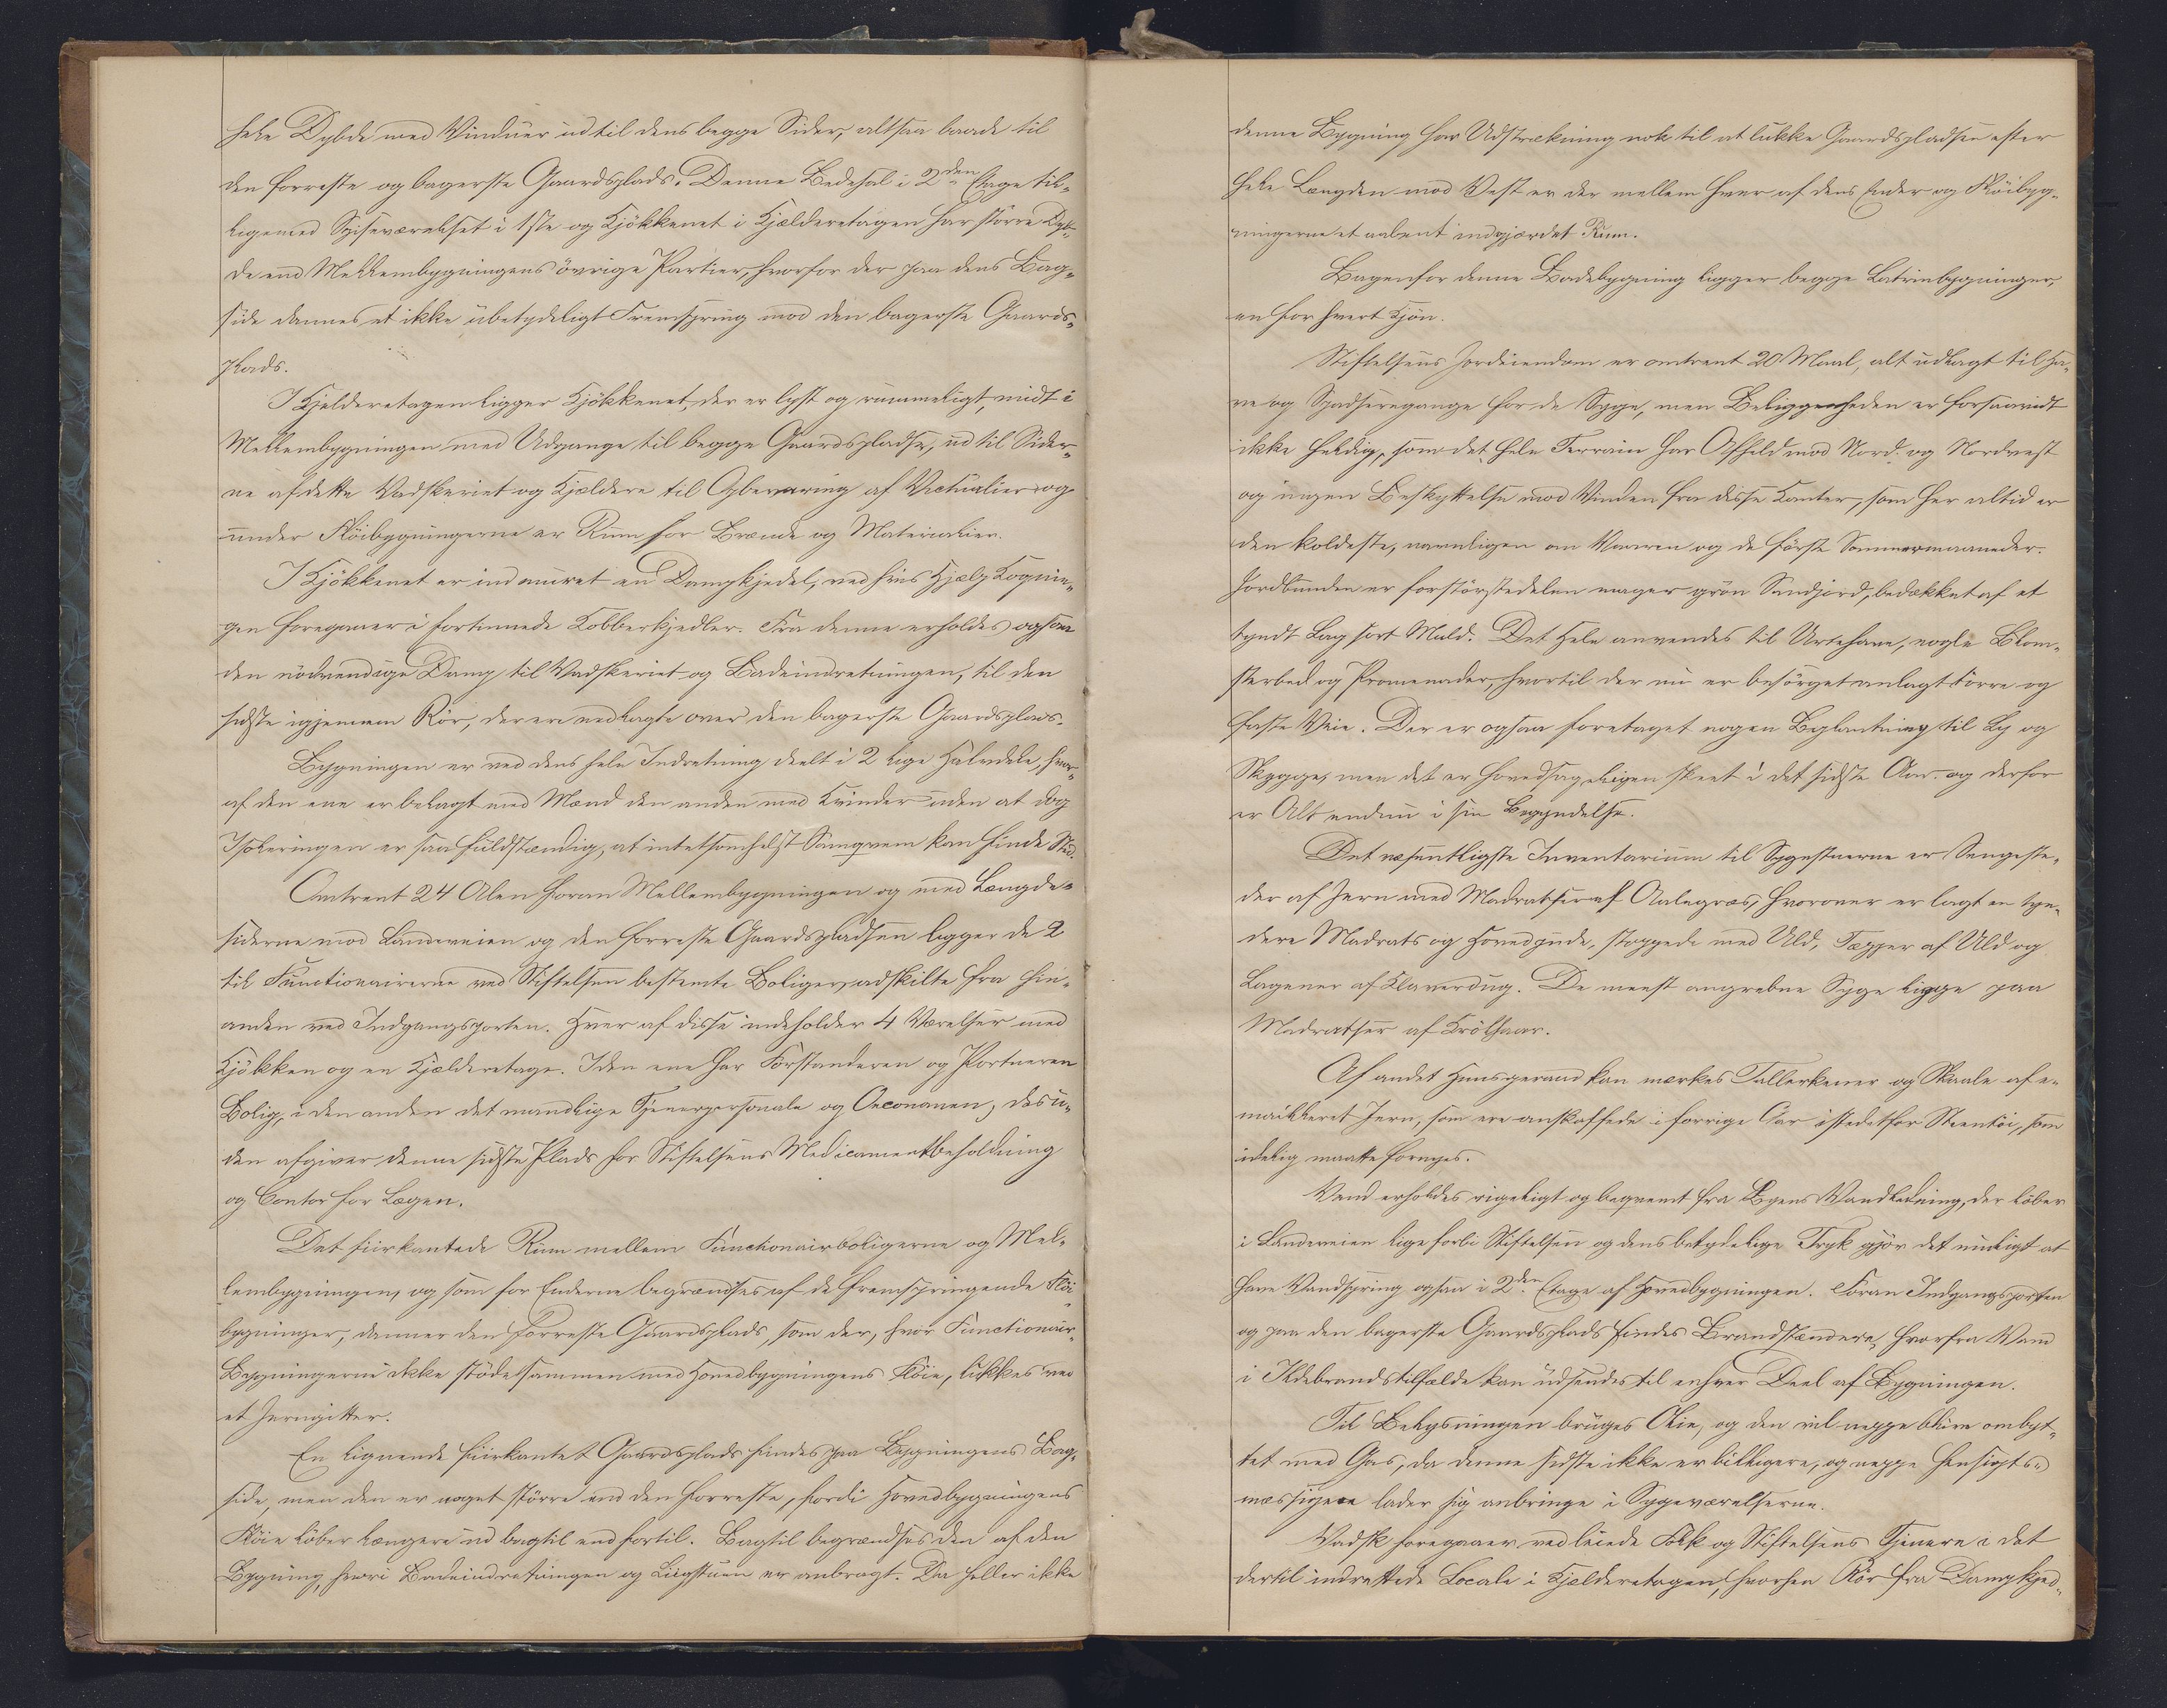 hele Dybde med Vinduer ud til dens begge Sider, altsaa baade til
den forreste og bagerste Gaardsplads. Denne Bedesal i 2den Etage til-
ligemed Spiseværelset i 1ste og Kjökkenet i Kjælderetagen har större Dyb-
de end Mellembygningens övrige Partier, hvorfor der paa dens Bag-
side dannes et ikke ubetydeligt Fremspring mod den bagerste Gaards-
plads.
I Kjelderetagen ligger Kjökkenet, der er lyst og rummeligt, midt i
Mellembygningen med Udgange til begge Gaardspladse, ud til Sider-
ne af dette Vadskeriet og Kjældere til Opbevaring af Victualier og
under Flöibygningerne er Rum for Brænde og Materialier.
I Kjökkenet er indmuret en Dampkjedel, ved hvis Hjælp Kognin-
gen foregaaer i fortinnede Kobberkjedler. Fra denne erholdes ogsaa
den nödvendige Damp til Vadskeriet og Badeindretningen, til den
sidste igjennem Rör, der ere nedlagte over den bagerste Gaardsplads.
Bygningen er ved dens hele Indretning deelt i 2 lige Halvdele, hvor-
af den ene er belagt med Mænd den anden med Kvinder uden at dog
Isoleringen er saa fuldstændig, at intetsomhelst Samqvem kan finde Sted.
Omtrent 24 Alen foran Mellembygningen og med Længde-
siderne mod Landeveien og den forreste Gaardspladsen ligger de 2
til Functionairerne ved Stiftelsen bestemte Boliger, adskilte fra hin-
anden ved Indgangsporten. Hver af disse indeholder 4 Værelser med
Kjökken og en Kjælderetage. I den ene har Forstanderen og Portneren
Bolig, i den anden det mandlige Tjenerpersonale og Oeconomen, desu-
den afgiver denne sidste Plads for Stiftelsens Medicamentbeholdning
og Contor for Lægen.
Det fiirkantede Rum mellem Functionairboligerne og Mel-
lembygningen, og som for Enderne begrændses af de fremspringende Flöi-
bygninger, danner den forreste Gaardsplads, som der, hvor Functionair-
Bygningerne ikke stöde sammen med Hovedbygningens Flöie, lukkes ved
et Jerngitter.
En lignende fiirkantet Gaardsplads findes paa Bygningens Bag-
side, men den er noget större end den forreste, fordi Hovedbygningens
Flöie löber længere ud bagtil end fortil. Bagtil begrændses den af den
Bygning, hvori Badeindretningen og Liigstuen er anbragt. Da heller ikke
denne Bygning har Udstrækning nok til at lukke Gaardspladsen efter
hele Længden mod Vest er der mellem hver af dens Ender og Flöibyg-
ningerne et aabent indgjærdet Rum.
Bagenfor denne Badebygning ligger begge Latrinbygninger,
en for hvert Kjön.
Stiftelsens Jordeiendom er omtrent 20 Maal, alt udlagt til Ha-
ve og Spadseregange for de Syge, men Beliggenheden er forsaavidt
ikke heldig, som det hele Terrain har Afheld mod Nord og Nordvest
og ingen Beskyttelse mod Vinden fra disse Kanter, som her altid er
den koldeste, navnligen om Vaaren og de förste Sommermaaneder.
Jordbunden er forstörstedelen mager grön Sandjord, bedækket af et
tyndt Lag sort Muld. Det Hele anvendes til Urtehave, nogle Blom-
sterbed og Promenader, hvortil der nu er besörget anlagt törre og
faste Veie. Der er ogsaa foretaget nogen Beplantning til Ly og
Skygge, men det er hovedsageligen skeet i det sidste Aar og derfor
er Alt endnu i sin Begyndelse.
Det væsentligste Inventarium til Sygestuerne er Sengeste-
der af Jern med Madratser af Aalegræs, hvorover er lagt en tyn-
dere Madrats og Hovedpude, stoppede med Uld, Tæpper af Uld og
Lagener af Klaverdug. De meest angrebne Syge ligge paa
Madratser af Kröllhaar.
Af andet Huusgeraad kan mærkes Tallerkener og Skaale af e-
mailleret Jern, som ere anskaffede i forrige Aar istedetfor Steentöi, som
idelig maatte fornyes.
Vand erholdes rigeligt og beqvemt fra Byens Vandledning, der löber
i Landeveien lige forbi Stiftelsen og dens betydelige Tryk gjör det muligt at
have Vandspring ogsaa i 2den Etage af Hovedbygningen. Foran Indgangsporten
og paa den bagerste Gaardsplads findes Brandstændere, hvorfra Vand
i Ildebrandstilfælde kan udsendes til enhver Deel af Bygningen.
Til Belysningen bruges Olie, og den vil neppe blive ombyt-
tet med Gas, da denne sidste ikke er billigere, og neppe hensigts-
mæssigere lader sig anbringe i Sygeværelserne.
Vadsk foregaaer ved leiede Folk og Stiftelsens Tjenere i det
dertil indrettede Locale i Kjælderetagen, hvorhen Rör fra Dampkjed-